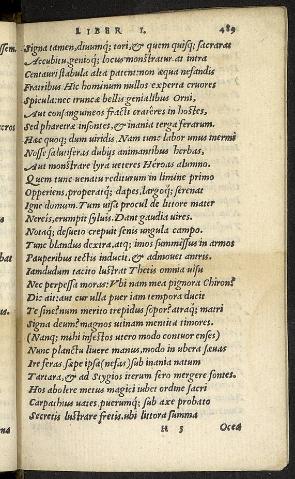 LIBER I. 489
Signa tamen, diuumq; tori, & quem quisq; sacrarat
Accubitu genioq; locus monstratur. at intra
Centauri stabula alta patent: non æqua nefandis
Fratribus Hic hominum nullos experta cruores
Spicula: nec truncæ bellis genialibus Orni,
Aut consanguineos fracti crateres in hostes,
Sed pharetræ insontes, & inania terga ferarum.
Hæc quoq; dum uiridis. Nam tunc labor unus inermi
Nosse salutiferas dubijs animantibus herbas,
Aut monstrare lyra ueteres Heroas alumno.
Quem tunc uenatu rediturum in limine primo
Opperiens, properatq; dapes, largoq; serenat
Igne domum. Tum uisa procul de littore mater
Nereis, erumpit syluis. Dant gaudia uires.
Notaq; desueto crepuit senis ungula campo.
Tunc blandus dextra, atq; imos summissus in armos
Pauperibus tectis inducit, & admouet antris.
Iamdudum tacito lustrat Thetis omnia uisu
Nec perpessa moras: Vbi nam mea pignora Chiron?
Dic ait: aut cur ulla puer iam tempora ducit
Te sine? num merito trepidus sopor? atraq; matri
Signa deum? magnos utinam mentita timores.
(Nanq; mihi infestos utero modo contuor enses)
Nunc planctu liuere manus, modo in ubera sæuas
Ire feras. sæpe ipsa (nefas) sub inania natum
Tartara, & ad Stygios iterum fero mergere fontes.
Hos abolere metus magici iubet ordine sacri
Carpathius uates, puerumq; sub axe probato
Secretis lustrare fretis. ubi littora summa
H 5 Ocea